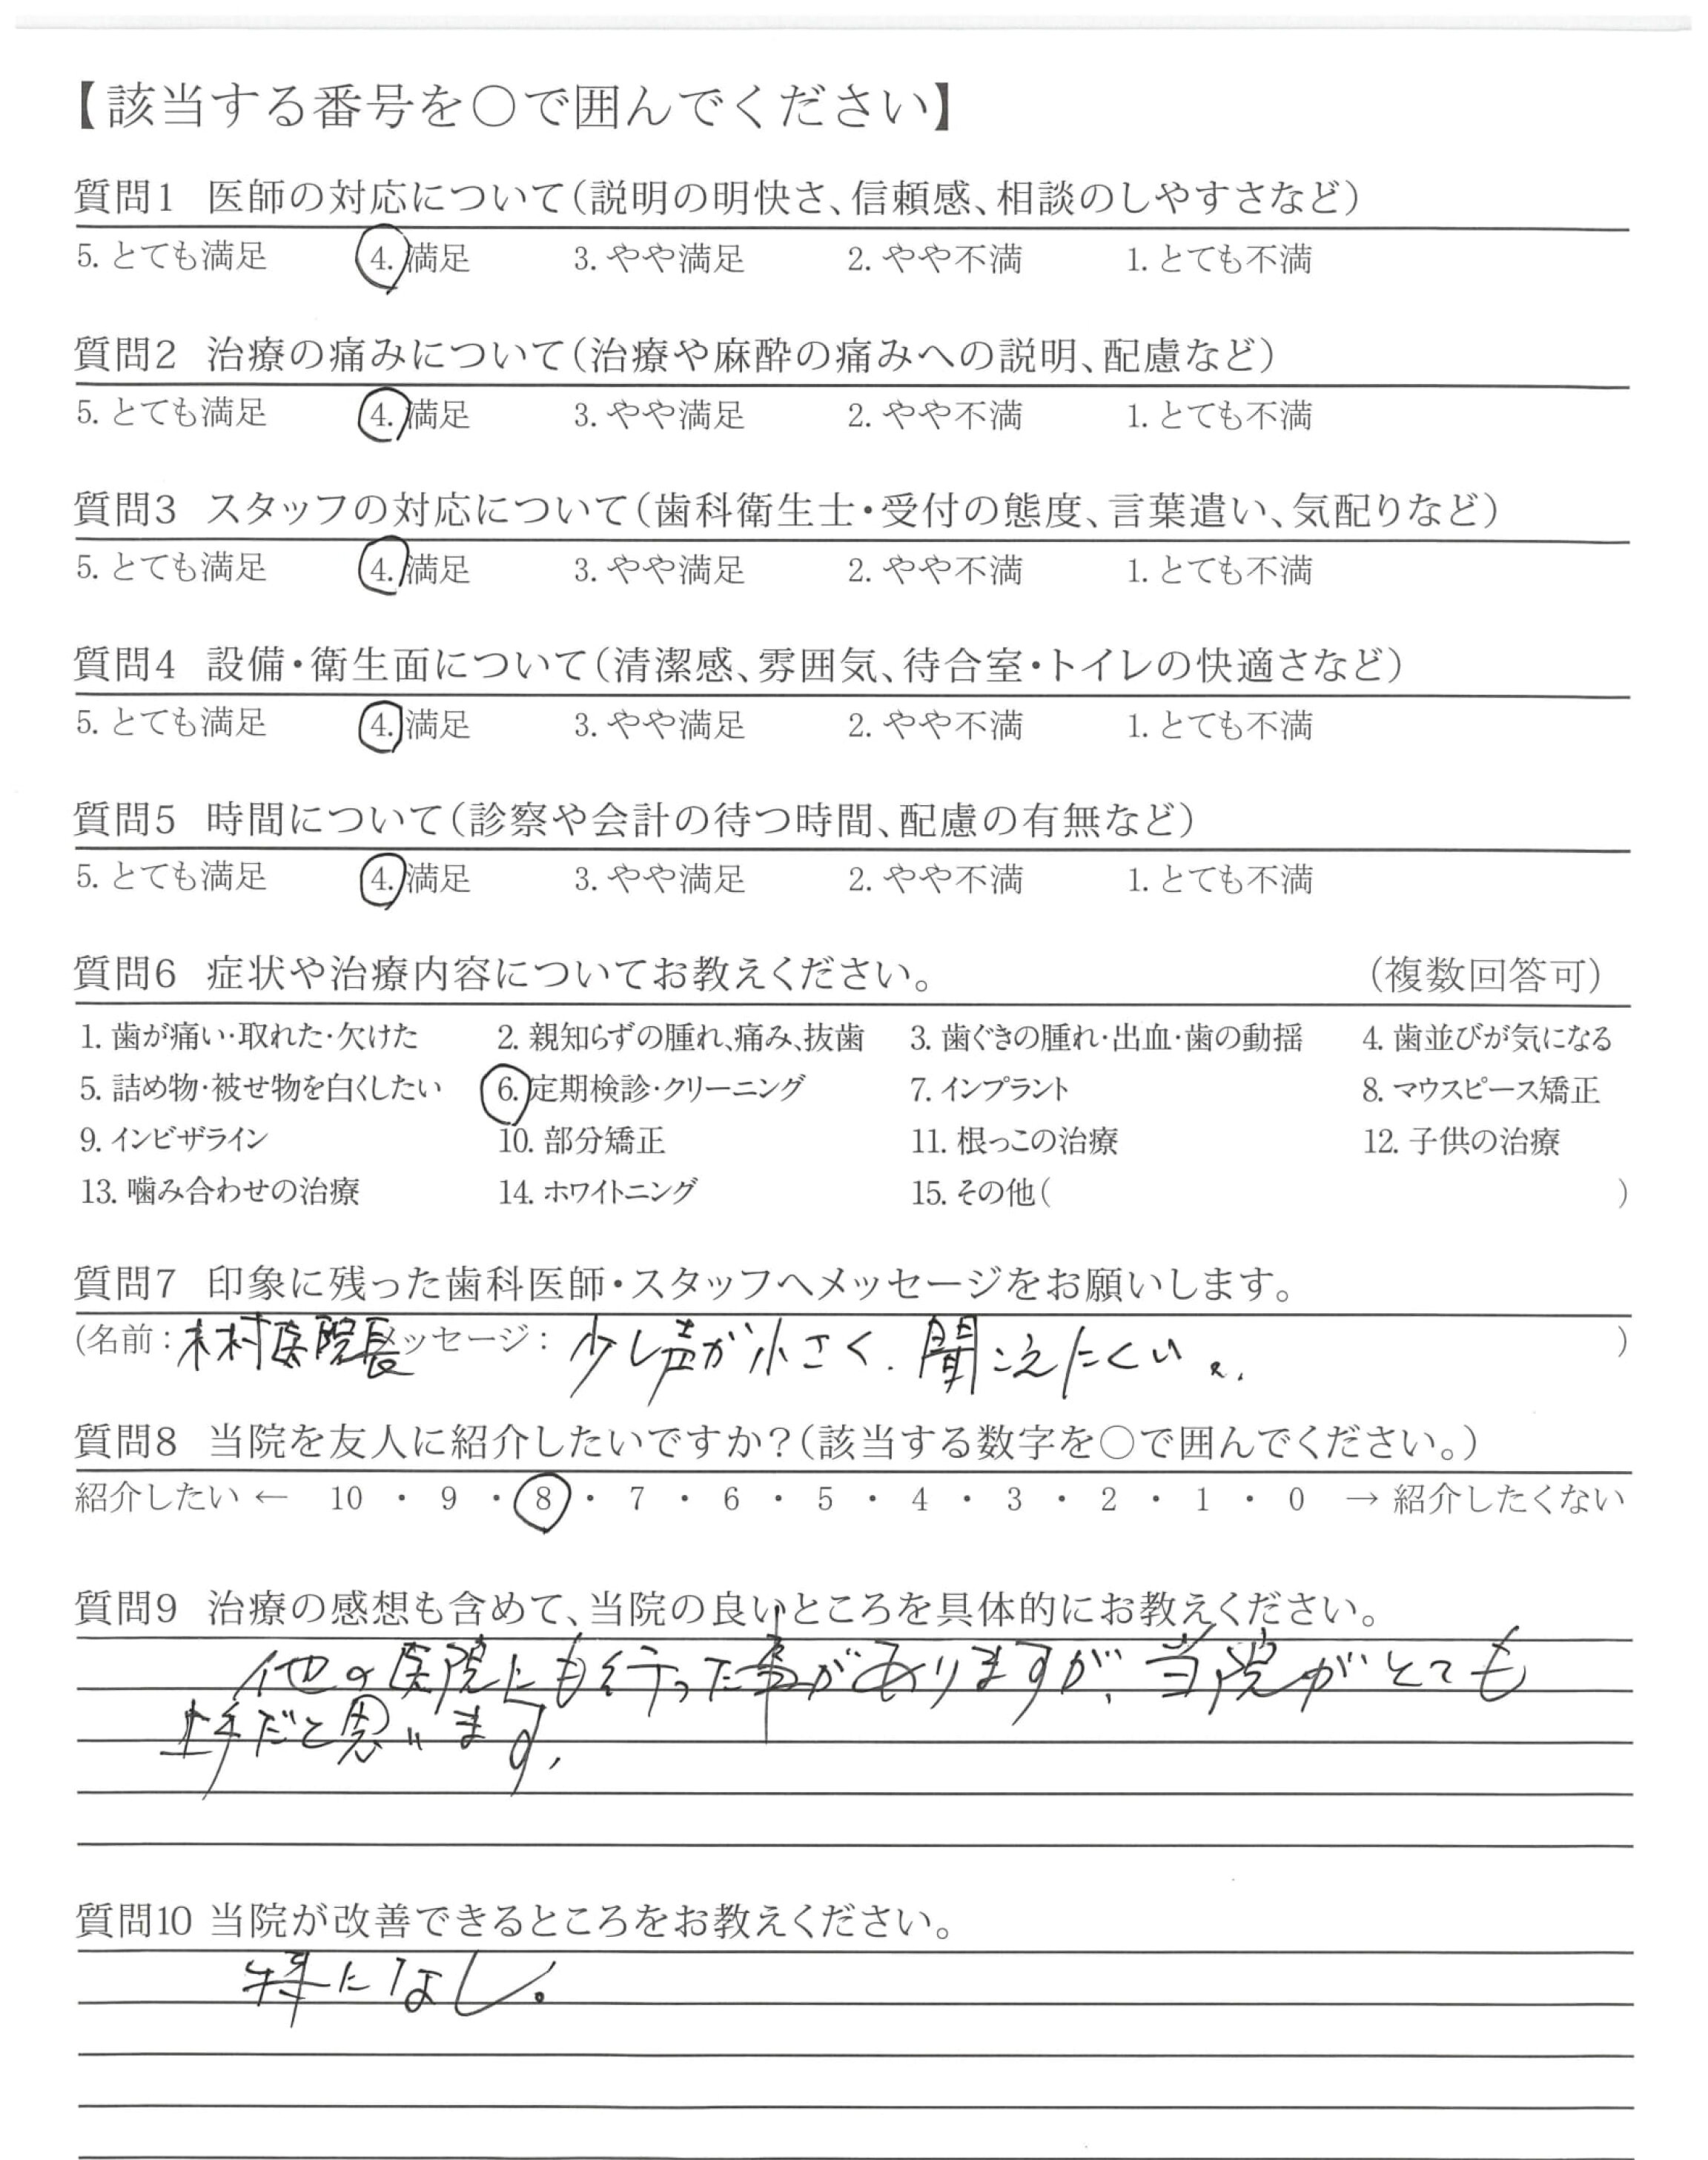 【該当する番号を○で囲んでください】
質問1 医師の対応について(説明の明快さ、信頼感、相談のしやすさなど)
5. とても満足 4. 満足 3. やや満足 2. やや不満 1. とても不満
質問2 治療の痛みについて(治療や麻酔の痛みへの説明、配慮など)
5. とても満足 4. 満足 3. やや満足 2. やや不満 1. とても不満
質問3 スタッフの対応について(歯科衛生士・受付の態度、言葉遣い、気配りなど)
5. とても満足 4. 満足 3. やや満足 2. やや不満 1. とても不満
質問4 設備・衛生面について(清潔感、雰囲気、待合室・トイレの快適さなど)
5. とても満足 4. 満足 3. やや満足 2. やや不満 1. とても不満
質問5 時間について(診察や会計の待つ時間、配慮の有無など)
5. とても満足 4. 満足 3. やや満足 2. やや不満 1. とても不満
質問6 症状や治療内容についてお教えください。 (複数回答可)
1. 歯が痛い・取れた・欠けた 2. 親知らずの腫れ、痛み、抜歯 3. 歯ぐきの腫れ・出血・歯の動揺 4. 歯並びが気になる
5. 詰め物・被せ物を白くしたい 6. 定期検診・クリーニング 7. インプラント 8. マウスピース矯正
9. インビザライン 10. 部分矯正 11. 根っこの治療 12. 子供の治療
13. 噛み合わせの治療 14. ホワイトニング 15. その他( )
質問7 印象に残った歯科医師・スタッフへメッセージをお願いします。
(名前: 木村医院長 メッセージ: 少し声が小さく、聞こえにくい。 )
質問8 当院を友人に紹介したいですか?(該当する数字を○で囲んでください。)
紹介したい ← 10 ・ 9 ・ 8 ・ 7 ・ 6 ・ 5 ・ 4 ・ 3 ・ 2 ・ 1 ・ 0 → 紹介したくない
質問9 治療の感想も含めて、当院の良いところを具体的にお教えください。
他の医院にも行った事がありますが、当院がとても
上手だと思います。
質問10 当院が改善できるところをお教えください。
特になし。